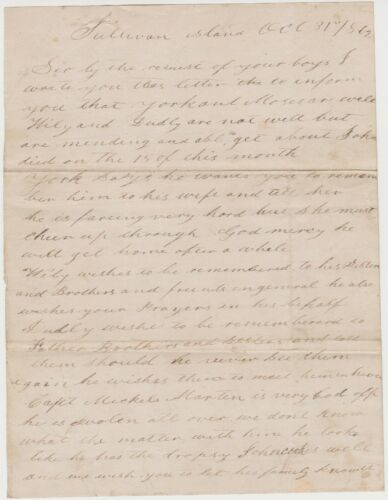 Sullivan island Oct 31st/862
Sir by the request of your boys I
write you this letter to inform
you that York and Moses ar well
Wily and Dudly are not well but
are mending and able get about John
died on the 15 of this month
York Says he wants you to remem
ber him to his wife and tell her
he is fareing very hard but she must
chear up through God mercy he
will get home after a while
Wily wishes to be remembered to his Sister
and Brothers and friends in general he also
wishes your Prayers in his behalf
Dudly wishe to be remembered to
Father Brothers and Sisters and tell
them should he never see them
again he wishes them to meet him in heaven
Capt Martin is very bad off
he is swolen all over we dont know
what the matter with him he looks
like he has the dropsy is well
and we wish you to let his family know it